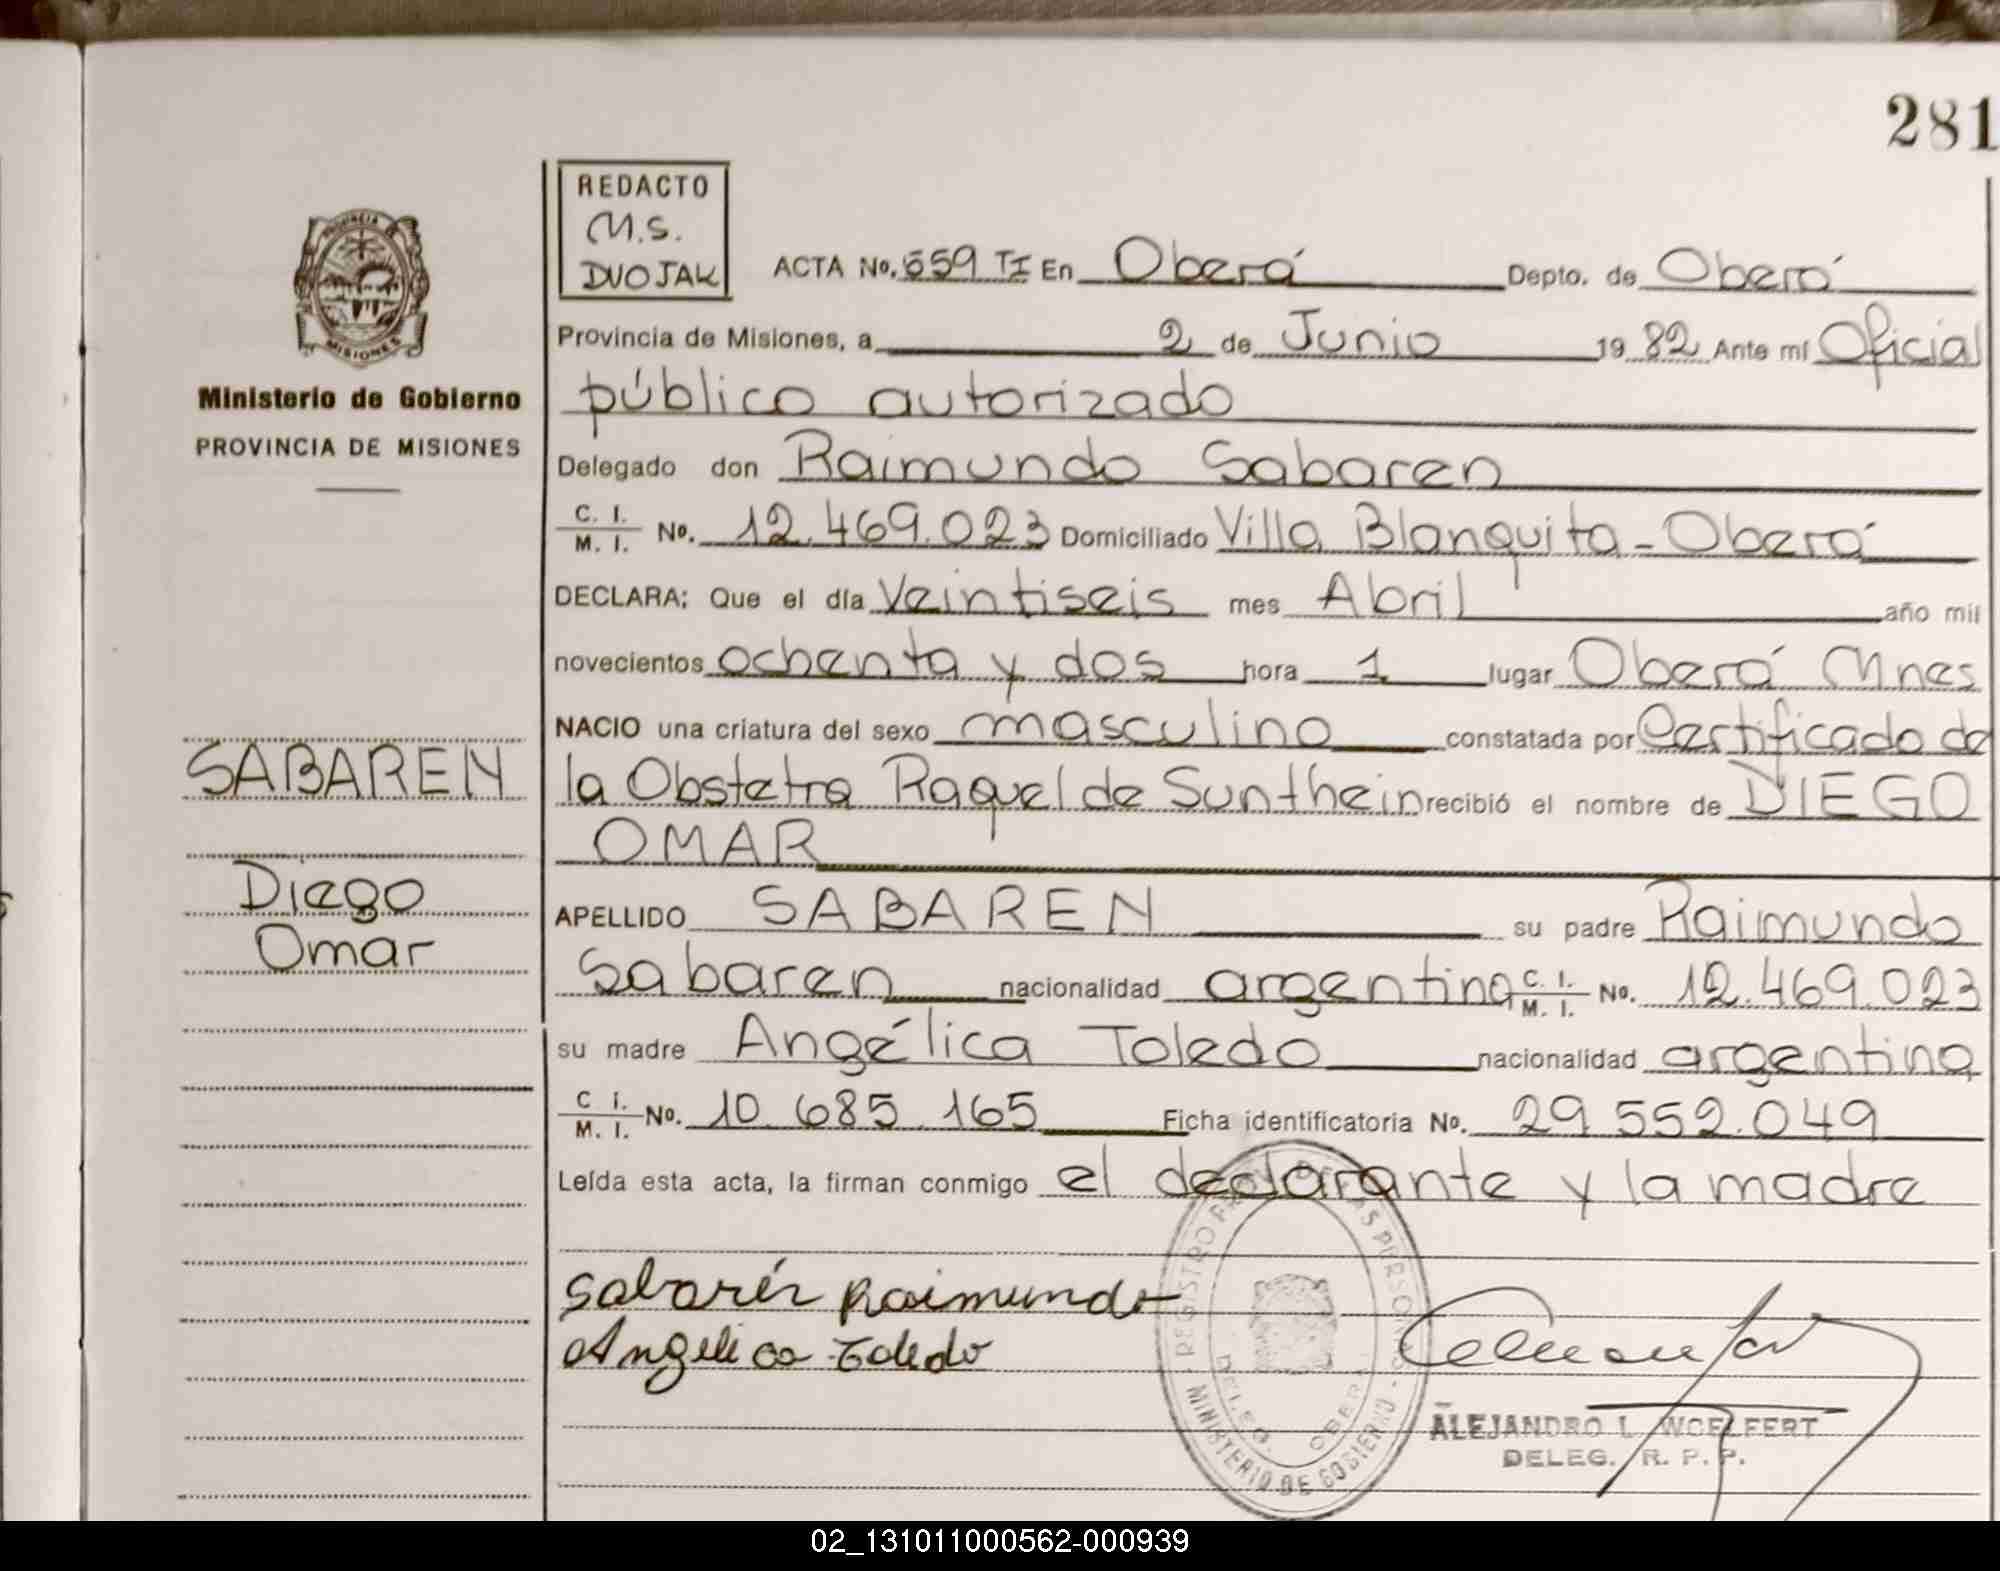 281
REDACTO
M.S.
DVOJAK
PROVINCIA
MISIONES
Ministerio de Gobierno
PROVINCIA DE MISIONES
ACTA No. 659 TI En Oberá Depto. de Oberá
Provincia de Misiones, a 2 de Junio 1982 Ante mí Oficial
público autorizado
Delegado don Raimundo Sabaren
C. I. M. I. No. 12.469.023 Domiciliado Villa Blanquita - Oberá
DECLARA: Que el día Veintiseis mes Abril año mil
novecientos ochenta y dos hora 1 lugar Oberá Mnes
NACIO una criatura del sexo masculino constatada por Certificado de
la Obstetra Raquel de Sunthein recibió el nombre de DIEGO
OMAR
SABAREN
Diego
Omar
APELLIDO SABAREN su padre Raimundo
Sabaren nacionalidad argentina C. I. M. I. No. 12.469.023
su madre Angélica Toledo nacionalidad argentina
C I. M. I. No. 10.685.165 Ficha identificatoria No. 29.552.049
Leída esta acta, la firman conmigo el declarante y la madre
Sabarén Raimundo
Angelica Toledo
REGISTRO PERSONAS
DELEG. OBERA
MINISTERIO DE GOBIERNO
ALEJANDRO L. WOELFERT
DELEG. R. P. P.
02_131011000562-000939